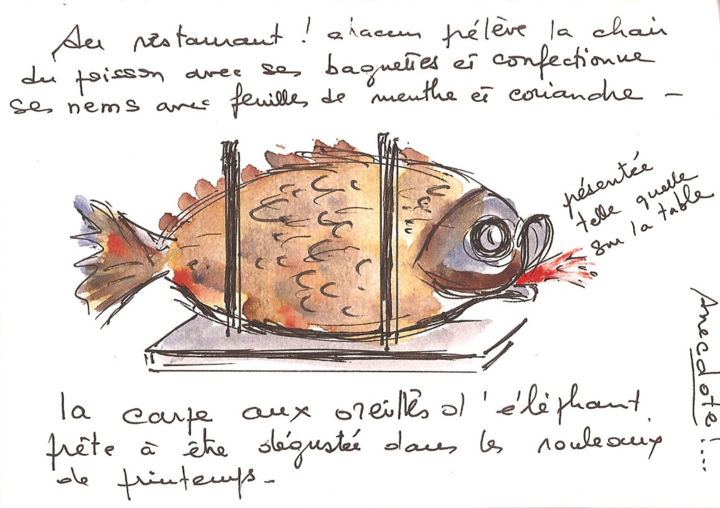 Au restaurant ! chacun prélève la chair
du poisson avec ses baguettes et confectionne
ses nems avec feuilles de menthe et coriandre -
présentée
telle quelle
sur la table
Anecdote !...
la carpe aux oreilles d'éléphant
prête à être dégustée dans les rouleaux
de printemps -